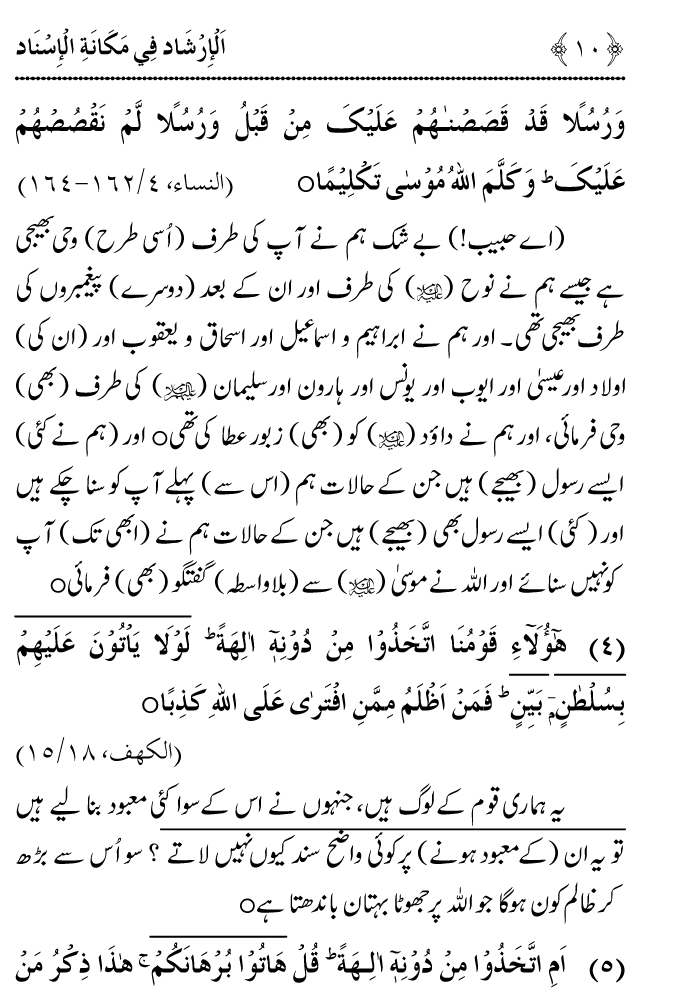 ﴿١٠﴾ اَلْإِرْشَاد فِي مَكَانَةِ الْإِسْنَاد
وَرُسُلًا قَدْ قَصَصْنٰهُمْ عَلَيْکَ مِنْ قَبْلُ وَرُسُلًا لَّمْ نَقْصُصْهُمْ
عَلَيْکَ ؕ وَکَلَّمَ اللهُ مُوْسٰی تَکْلِيْمًاo (النساء، ٤/١٦٢-١٦٤)
(اے حبیب!) بے شک ہم نے آپ کی طرف (اُسی طرح) وحی بھیجی
ہے جیسے ہم نے نوح (علیہ السلام) کی طرف اور ان کے بعد (دوسرے) پیغمبروں کی
طرف بھیجی تھی۔ اور ہم نے ابراہیم و اسماعیل اور اسحاق و یعقوب اور (ان کی)
اولاد اور عیسیٰ اور ایوب اور یونس اور ہارون اور سلیمان (علیہم السلام) کی طرف (بھی)
وحی فرمائی، اور ہم نے داؤد (علیہ السلام) کو (بھی) زبور عطا کی تھیo اور (ہم نے کئی)
ایسے رسول (بھیجے) ہیں جن کے حالات ہم (اس سے) پہلے آپ کو سنا چکے ہیں
اور (کئی) ایسے رسول بھی (بھیجے) ہیں جن کے حالات ہم نے (ابھی تک) آپ
کو نہیں سنائے اور اللہ نے موسیٰ (علیہ السلام) سے (بلاواسطہ) گفتگو (بھی) فرمائیo
(٤) هٰٓؤُلَآءِ قَوْمُنَا اتَّخَذُوْا مِنْ دُوْنِهٖٓ اٰلِهَةً ؕ لَوْلَا يَاْتُوْنَ عَلَيْهِمْ
بِسُلْطٰنٍ ۢ بَيِّنٍ ؕ فَمَنْ اَظْلَمُ مِمَّنِ افْتَرٰی عَلَی اللهِ کَذِبًاo
(الكهف، ١٨/١٥)
یہ ہماری قوم کے لوگ ہیں، جنہوں نے اس کے سوا کئی معبود بنا لیے ہیں
تو یہ ان (کے معبود ہونے) پر کوئی واضح سند کیوں نہیں لاتے ؟ سو اُس سے بڑھ
کر ظالم کون ہوگا جو اللہ پر جھوٹا بہتان باندھتا ہےo
(٥) اَمِ اتَّخَذُوْا مِنْ دُوْنِهٖٓ اٰلِـهَةً ؕ قُلْ هَاتُوْا بُرْهَانَکُمْ ۚ هٰذَا ذِکْرُ مَنْ